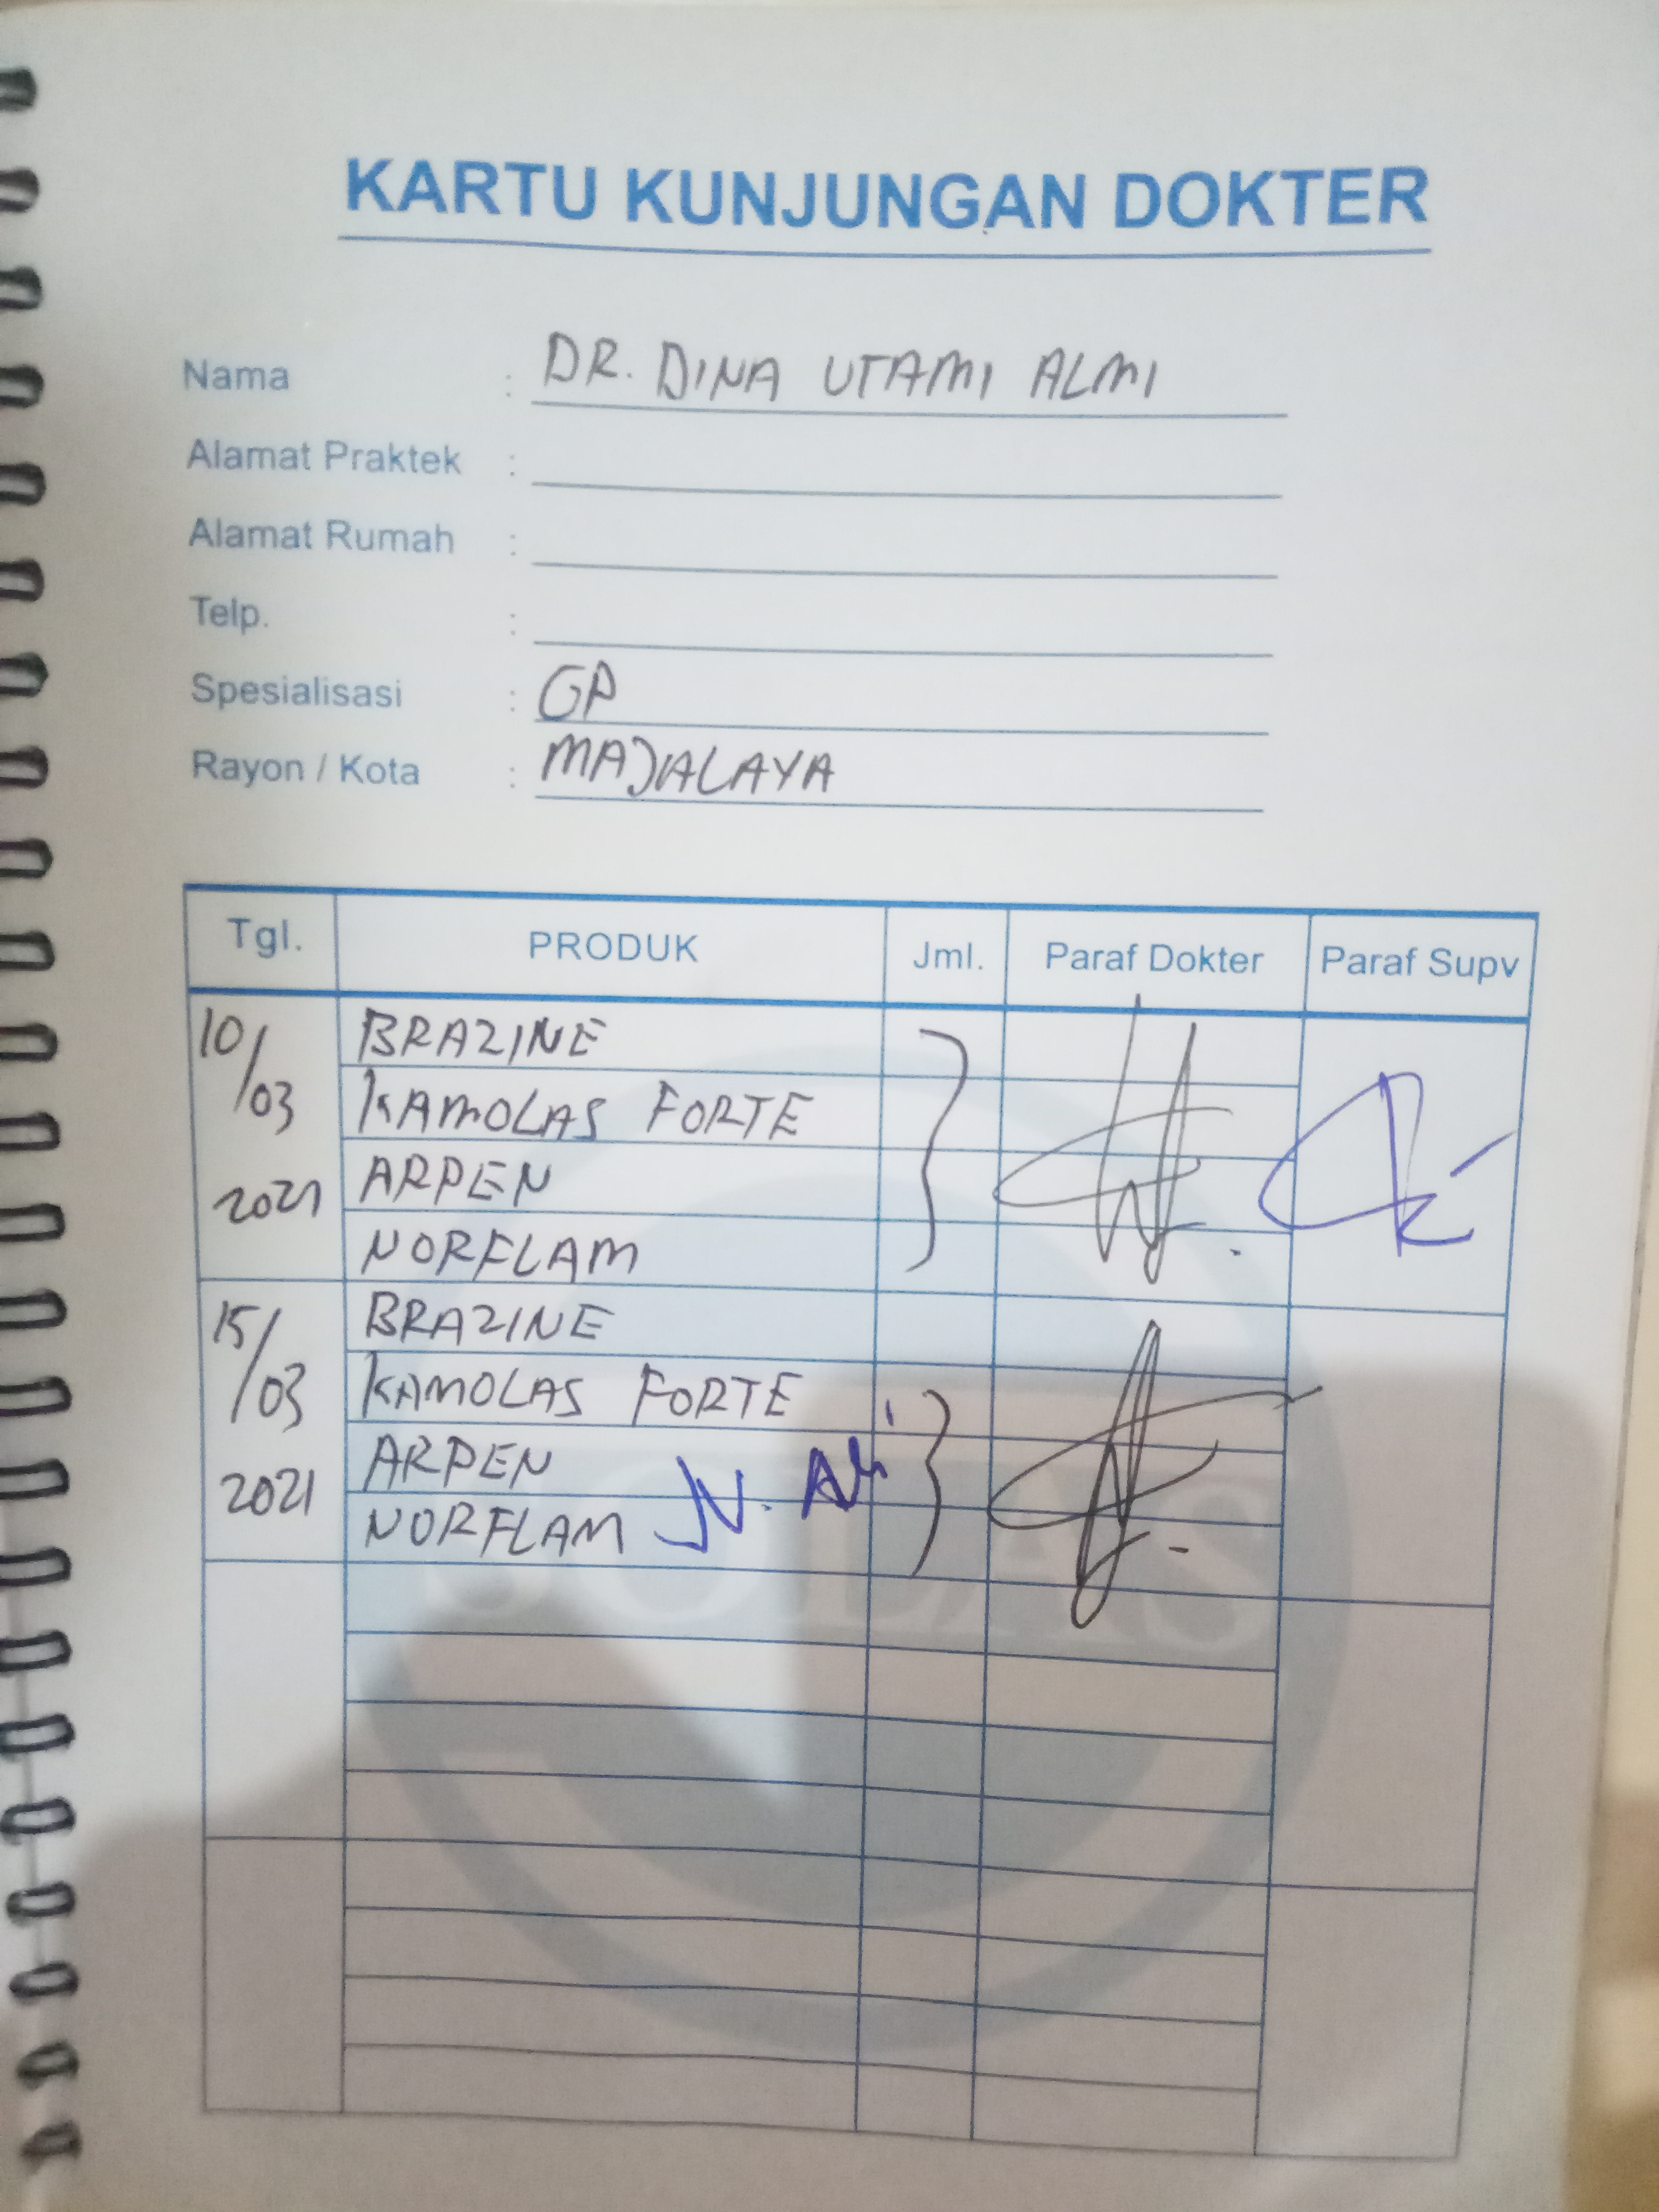 KARTU KUNJUNGAN DOKTER
Nama : DR. DINA UTAMI ALMI
Alamat Praktek :
Alamat Rumah :
Telp. :
Spesialisasi : GP
Rayon / Kota : MAJALAYA
Tgl. PRODUK Jml. Paraf Dokter Paraf Supv
10/03 2021 BRAZINE
KAMOLAS FORTE
ARPEN
NORFLAM
15/03 2021 BRAZINE
KAMOLAS FORTE
ARPEN
NORFLAM